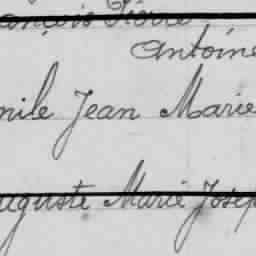 ançois Pierre
Antoine
mile Jean Marie
uguste Marie Josep